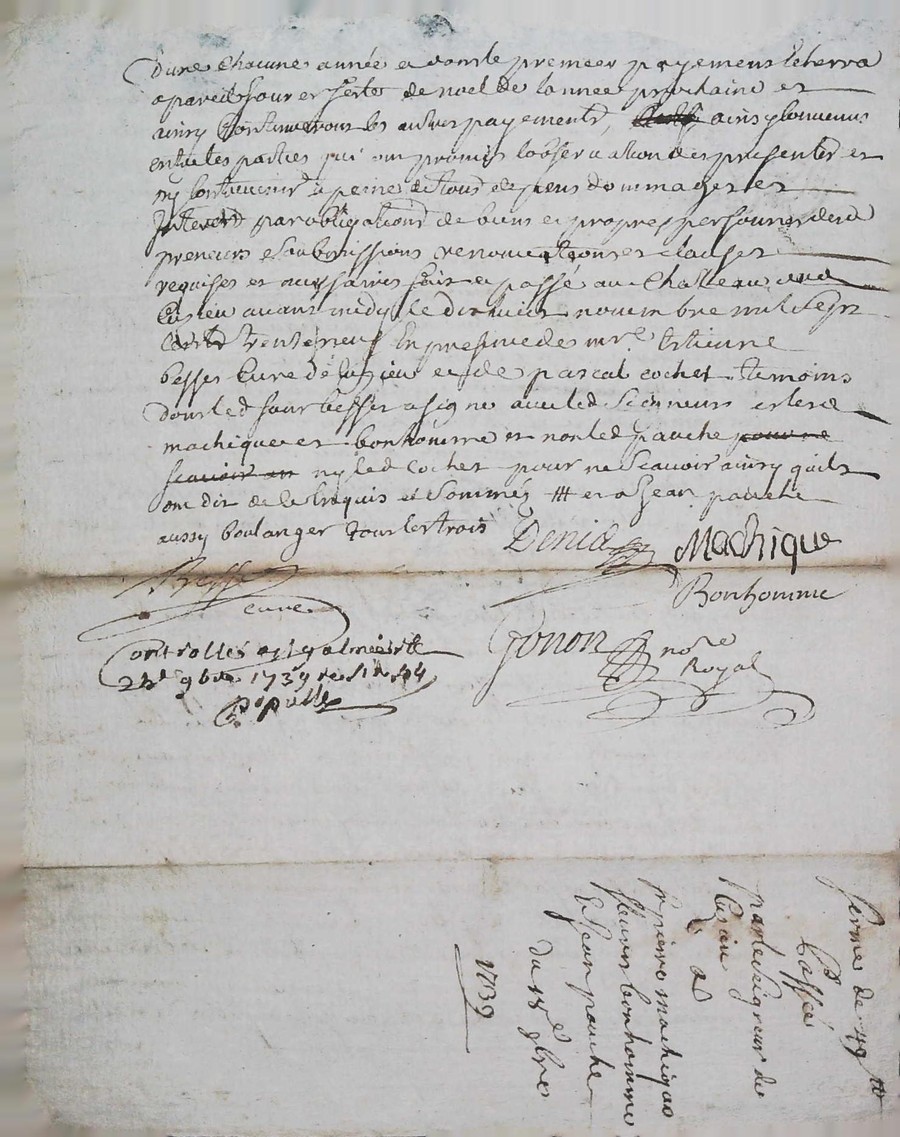 Dune chacune année et dont le premier payement eschera
a pareil jour et feste de noel de lannee prochaine et
ainsy continueront les autres payements, ainsy convenus
entre les parties qui ont promis lobservation des presentes et
ny contrevenir a peine de tous depens dommages et
Interets par obligations de biens et propres personnes desd
preneurs et soubmissions renonciations et clauses
requises et necessaires fait et passé au Chatteau dud
avant midy le dix huit novembre mil sept
cents trente neuf En presence de mre Estienne
besses Curé de et de pascal cochet temoins
dont led sieur besses a signé avec led Seigneur et lesd
machique et bonhomme et non led pauche pour ne
scavoir ny led cochet pour ne Scavoir ainsy quils
ont dit de ce Enquis et Sommés et a Jean pauche
aussy boulanger tous les trois
Denis Machique
Besse Bonhomme
curé
Gonon nore
Royal
Controllé a St galmier le
9bre 1739
ferme de 49 tt
Passé
par le seigneur de
a
Sr pierre machique
fleury bonhomme
Et Jean pauche
du 18e 9bre
1739